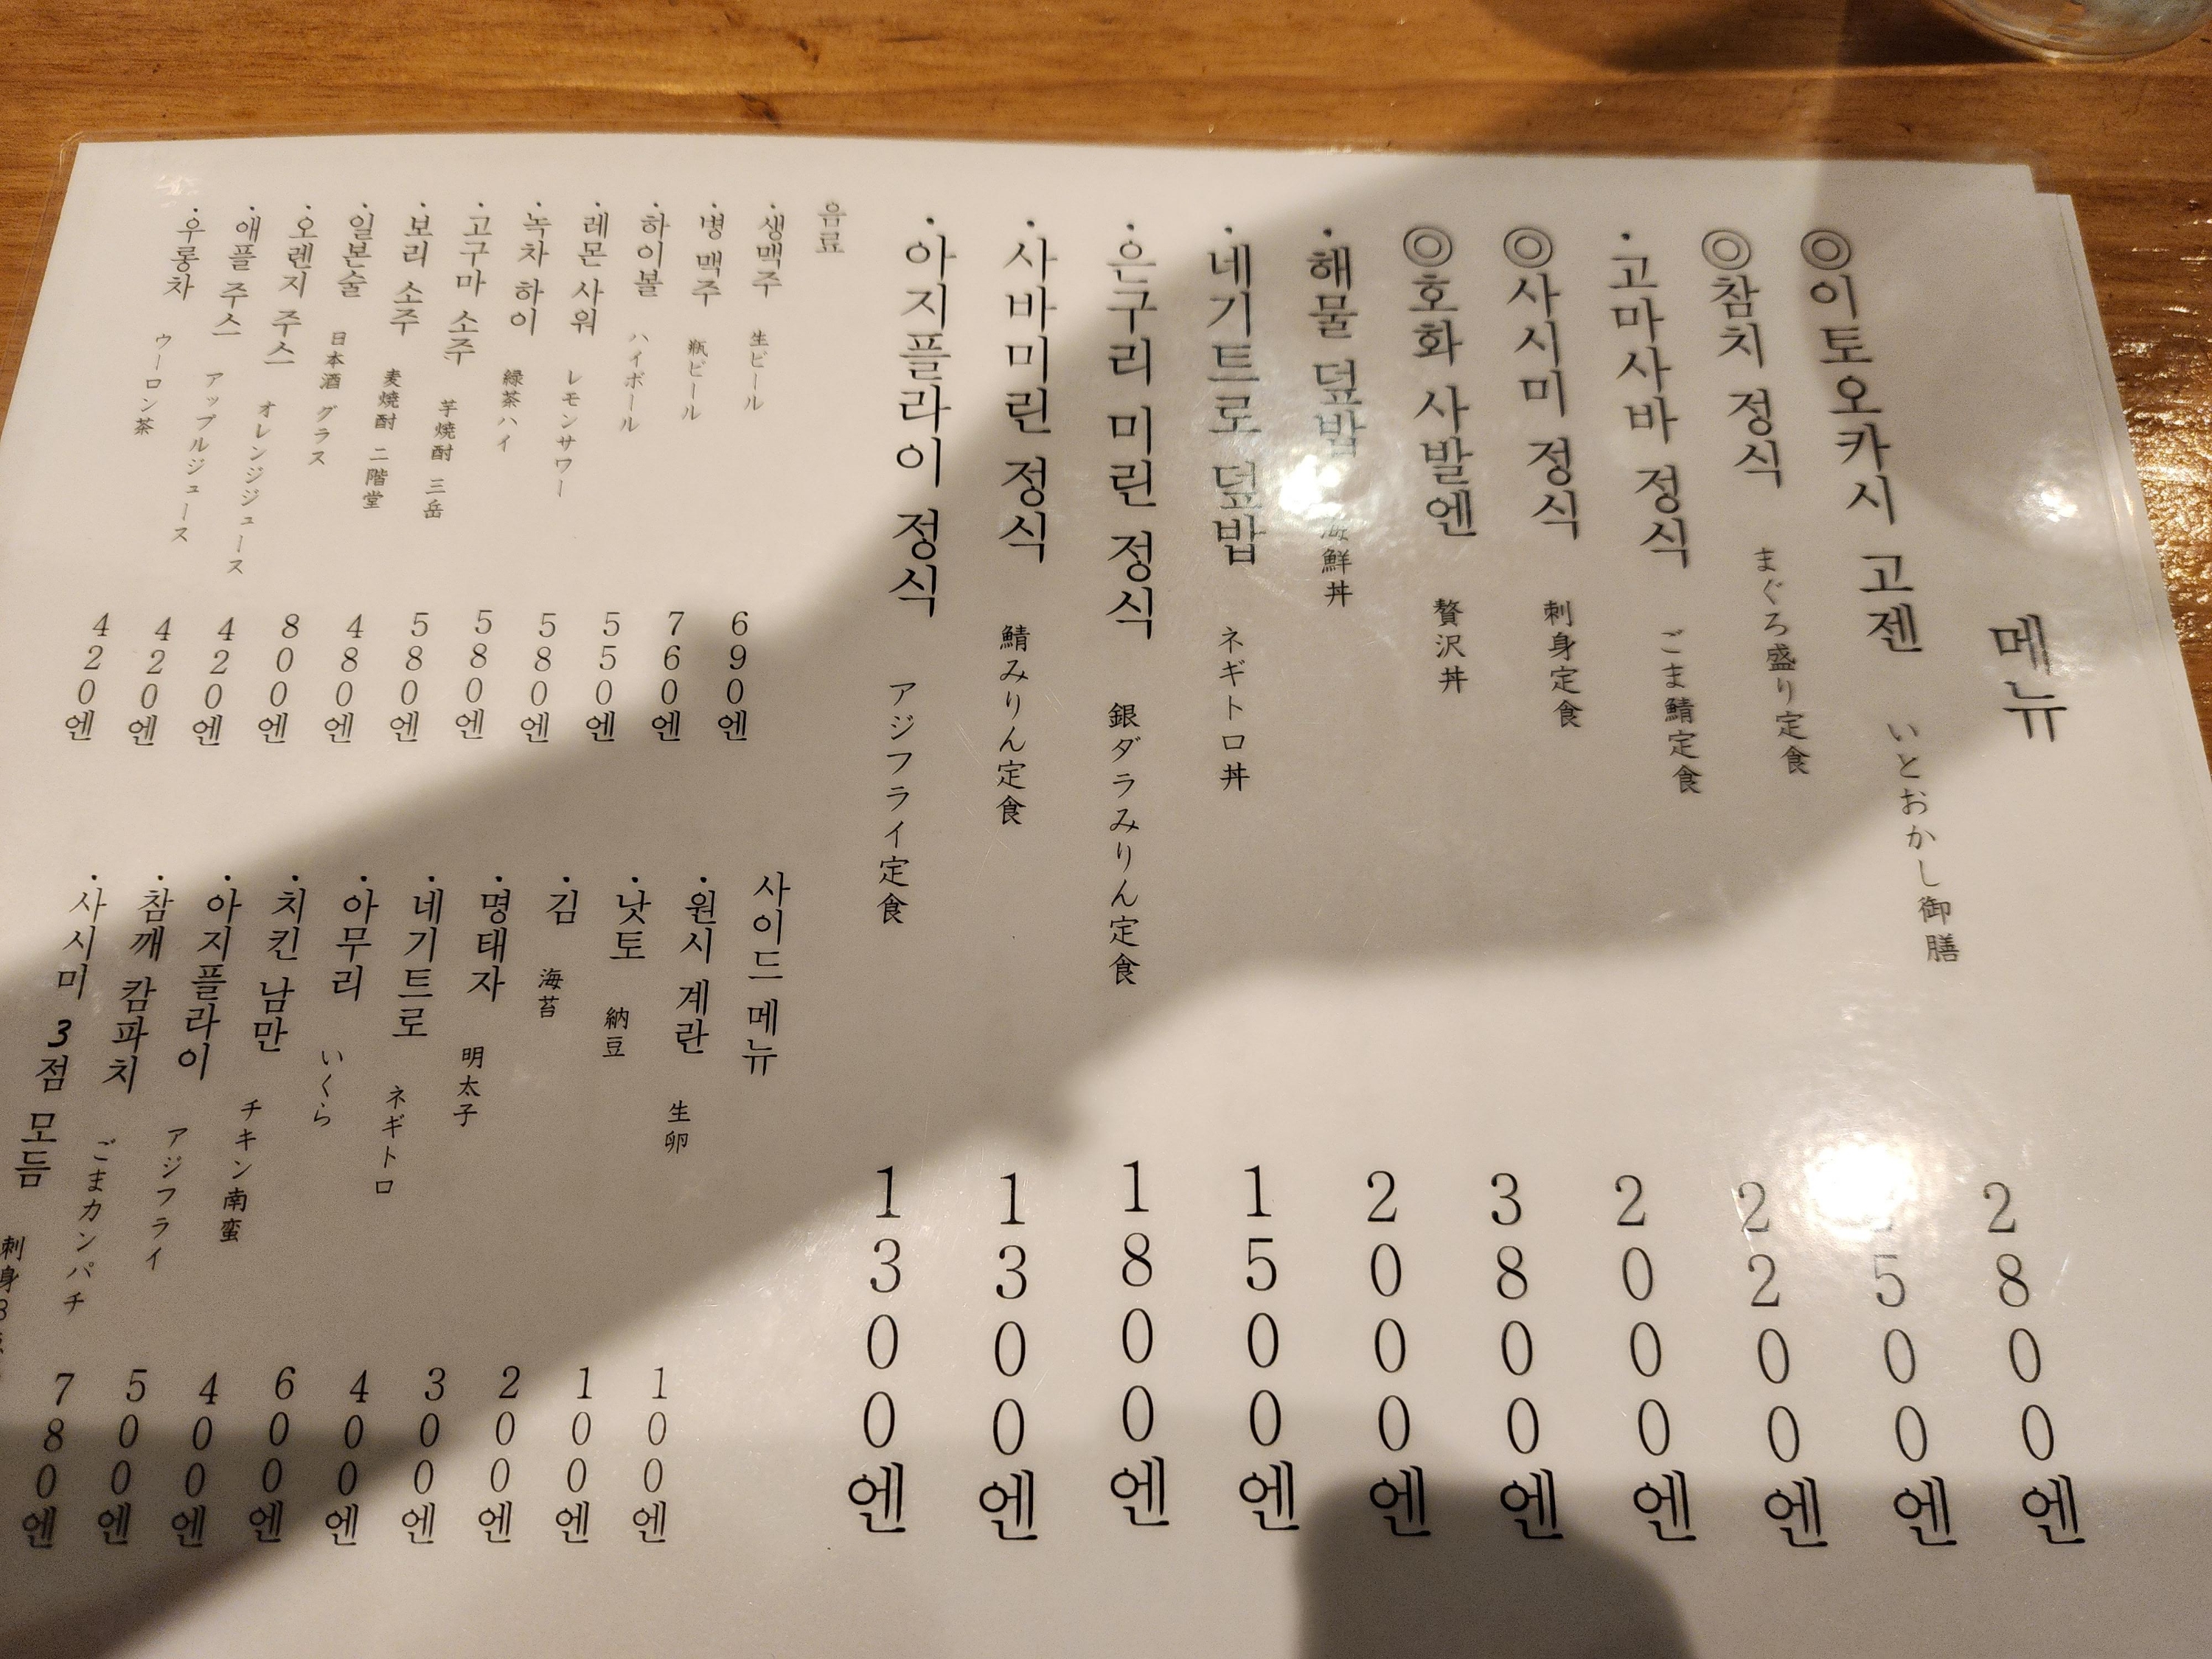 메뉴
◎이토오카시 고젠 いとおかし御膳 2800엔
◎참치 정식 まぐろ盛り定食
・고마사바 정식 ごま鯖定食 2200엔
◎사시미 정식 刺身定食 2000엔
◎호화 사발엔 贅沢丼 3800엔
・해물 덮밥 海鮮丼 2000엔
・네기트로 덮밥 ネギトロ丼 1500엔
・은구리 미린 정식 銀ダラみりん定食 1800엔
・사바미린 정식 鯖みりん定食 1300엔
・아지플라이 정식 アジフライ定食 1300엔
음료
・생맥주 生ビール 690엔
・병 맥주 瓶ビール 760엔
・하이볼 ハイボール 550엔
・레몬 사워 レモンサワー 580엔
・녹차 하이 緑茶ハイ 580엔
・고구마 소주 芋焼酎 三岳 580엔
・보리 소주 麦焼酎 二階堂 480엔
・일본술 日本酒 グラス 800엔
・오렌지 주스 オレンジジュース 420엔
・애플 주스 アップルジュース 420엔
・우롱차 ウーロン茶 420엔
사이드 메뉴
・원시 계란 生卵 100엔
・낫토 納豆 100엔
・김 海苔 200엔
・명태자 明太子 300엔
・네기트로 ネギトロ 400엔
・아무리 いくら 600엔
・치킨 남만 チキン南蛮 400엔
・아지플라이 アジフライ 500엔
・참깨 캄파치 ごまカンパチ 780엔
・사시미 3점 모듬 刺身3